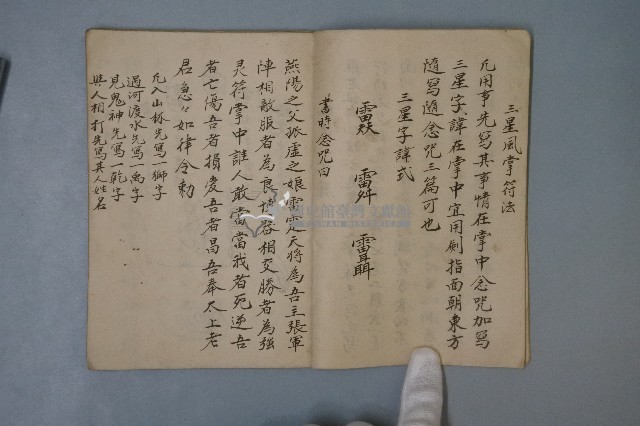 三星風掌符法
凡用事先寫其事情在掌中念咒加寫
三星字諱在掌中宜用劍指面朝東方
隨寫隨念咒三篇可也
三星字諱式
書時念咒曰
燕陽之父孤虛之娘雷霆天將為吾主張軍
陣相敵服者為良博弈相交勝者為強
灵符掌中誰人敢當當我者死逆吾
者亡傷吾者損愛吾者昌吾奉太上老
君急々如律令勅
凡入山林先寫一獅字
過河渡水先寫一禹字
見鬼神先寫一乾字
與人相打先寫其人姓名